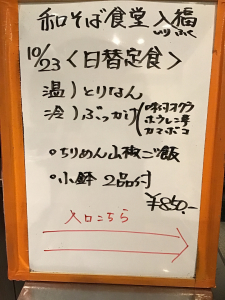 和そば食堂 入福
いりふく
10/23 <日替定食>
温)とりなん
冷)ぶっかけ(味付オクラ
ホウレン草
カマボコ)
・ちりめん山椒ご飯
・小鉢 2品付
¥850.-
入口こちら